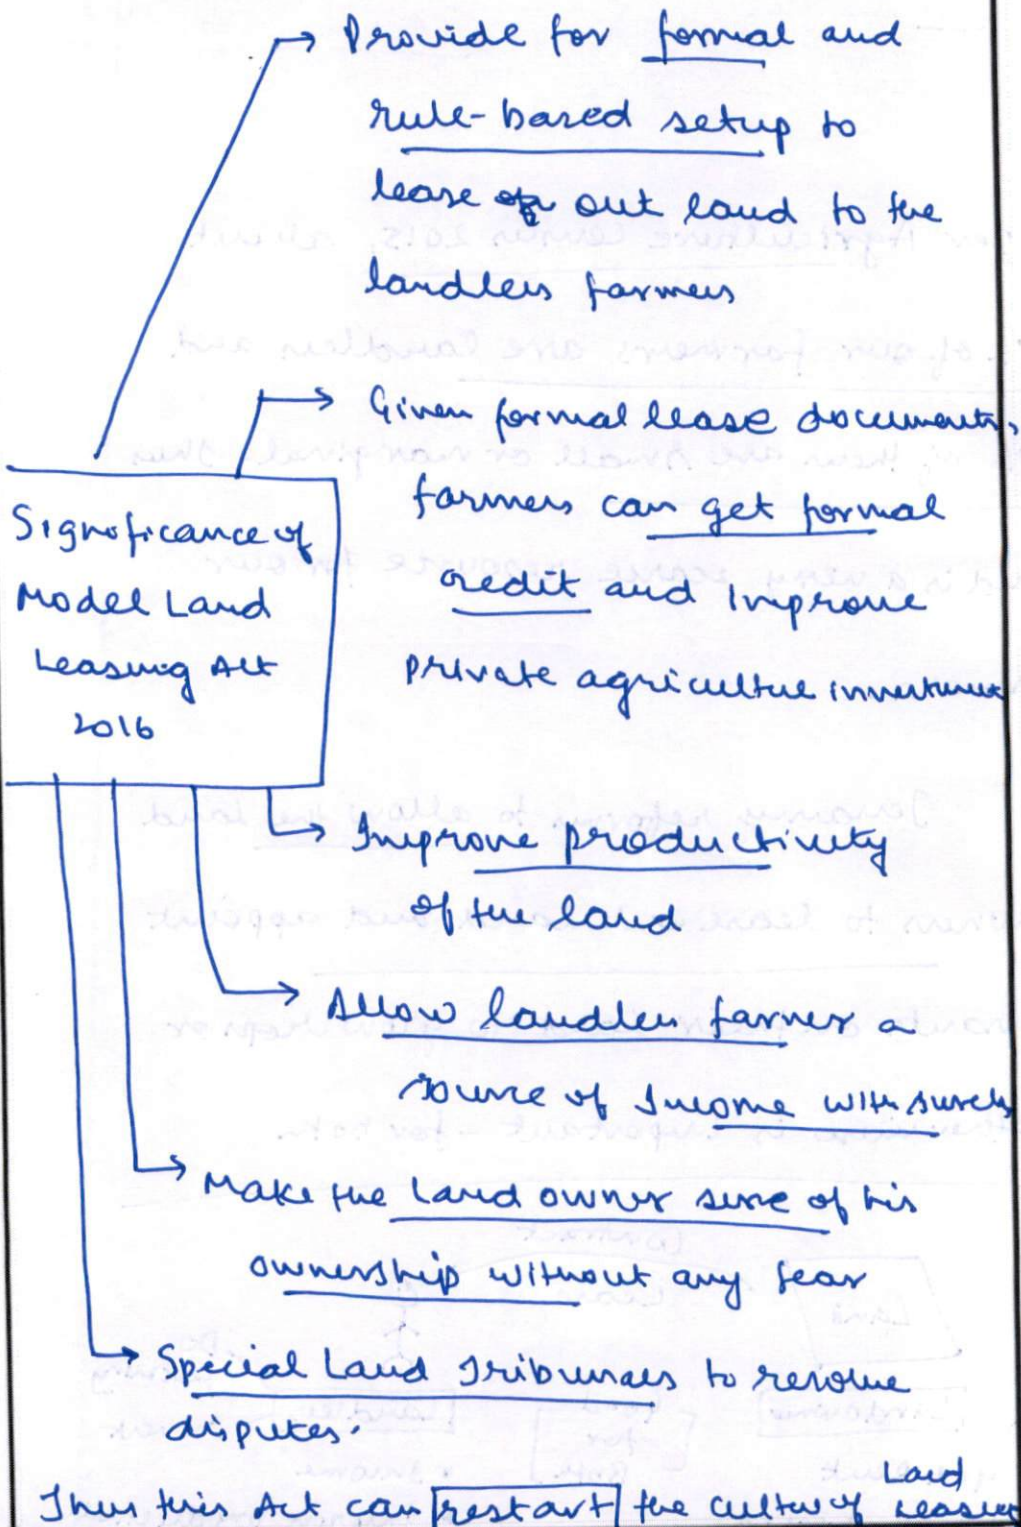 Provide for formal and
rule-based setup to
lease out land to the
landless farmers
Given formal lease documents,
farmers can get formal
credit and improve
private agriculture investment
Significance of
Model Land
Leasing Act
2016
Improve productivity
of the land
Allow landless farmer a
source of Income with surety
Make the land owner sure of his
ownership without any fear
Special Land Tribunals to resolve
disputes.
Land
Thus this Act can restart the culture of Leasing